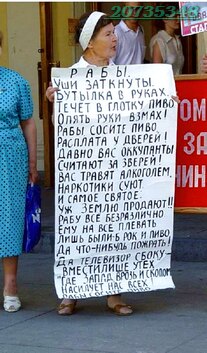 20735348
РАБЫ
УШИ ЗАТКНУТЫ
БУТЫЛКА В РУКАХ
ТЕЧЕТ В ГЛОТКУ ПИВО
ОПЯТЬ РУКИ ВЗМАХ!
РАБЫ СОСИТЕ ПИВО
РАСПЛАТА У ДВЕРИ!
ДАВНО ВАС ОККУПАНТЫ
СЧИТАЮТ ЗА ЗВЕРИ!
ВАС ТРАВЯТ АЛКОГОЛЕМ,
НАРКОТИКИ СУЮТ
И САМОЕ СВЯТОЕ
УЖ ЗЕМЛЮ ПРОДАЮТ!!
РАБУ ВСЕ БЕЗРАЗЛИЧНО
ЕМУ НА ВСЕ ПЛЕВАТЬ
ЛИШЬ БЫЛ-Б РОК И ПИВО
ДА ЧТО-НИБУДЬ ПОЖРАТЬ!
ДА ТЕЛЕВИЗОР СБОКУ-
ВМЕСТИЛИЩЕ УТЕХ
ГДЕ ЗАПАД ВРОЗЬ И СКОПОМ
НАСИЛУЕТ НАС ВСЕХ
ЗА